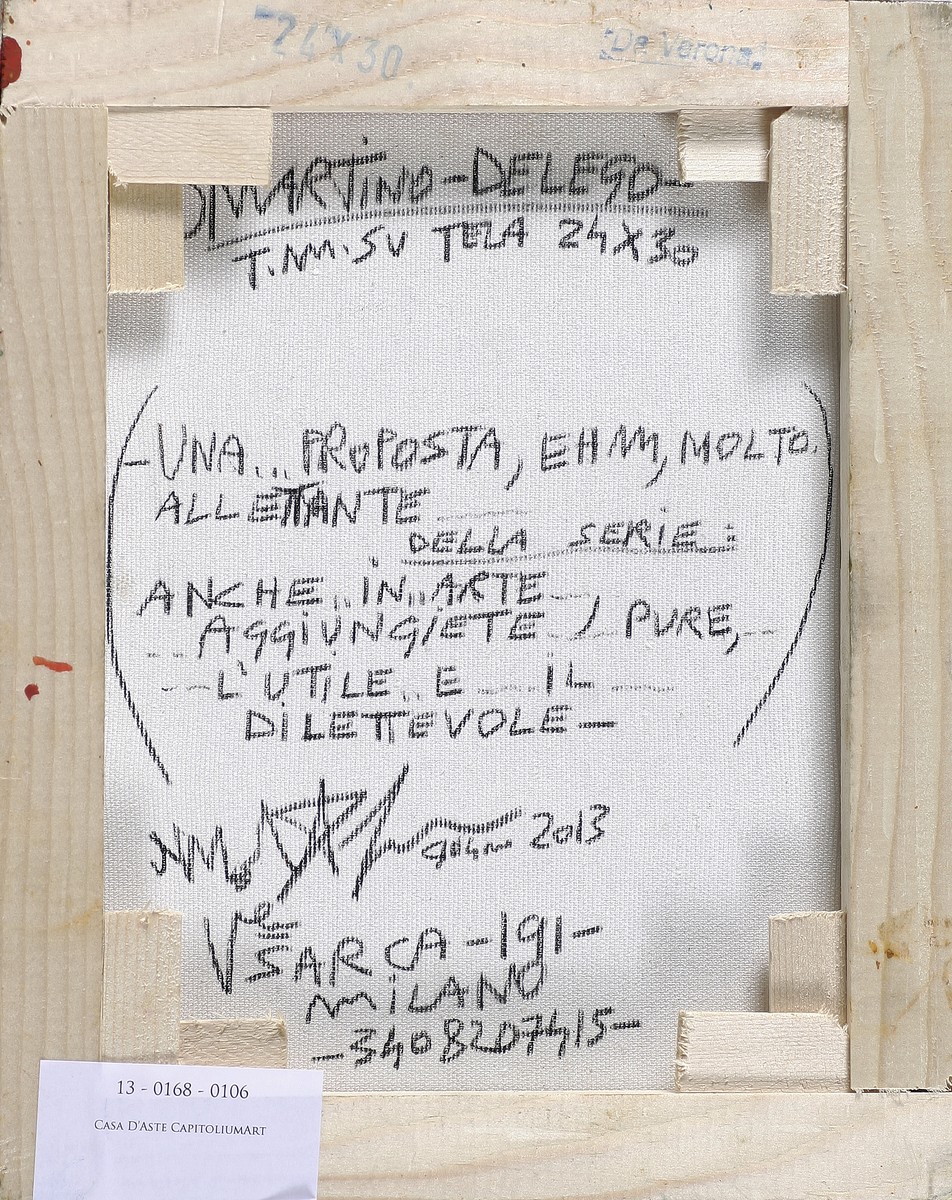 24X30
"De Verona"
MARTINO-DELEGO-
T.M.SU TELA 24X30
-UNA... PROPOSTA, EHM, MOLTO.
ALLETTANTE
DELLA SERIE:
ANCHE..IN..ARTE
AGGIUNGIETE, PURE,
L'UTILE.. E IL
DILETTEVOLE-
2013
Vle SARCA-191-
MILANO
-3408207415-
13 - 0168 - 0106
CASA D'ASTE CAPITOLIUMART